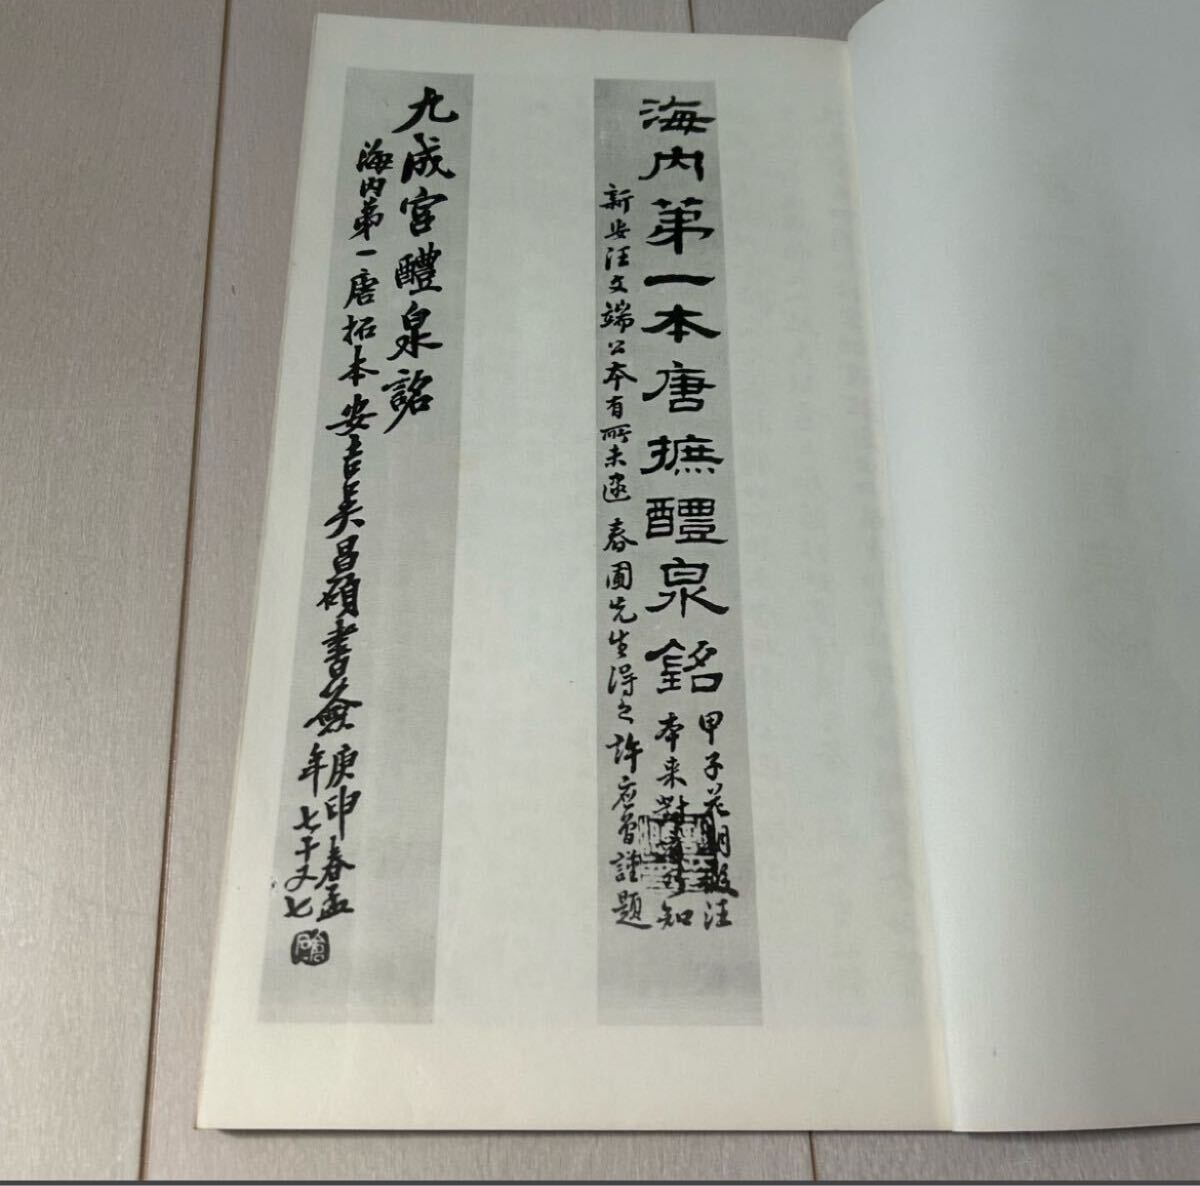 海内第一本唐摭醴泉銘
甲子花朝後汪
本来對 知
新安汪文端公本有所未逮 春圃先生得之 許應 謹題
九成宮醴泉銘
海内第一唐拓本 安吉吳昌碩書籤
庚申春孟
年七十又七